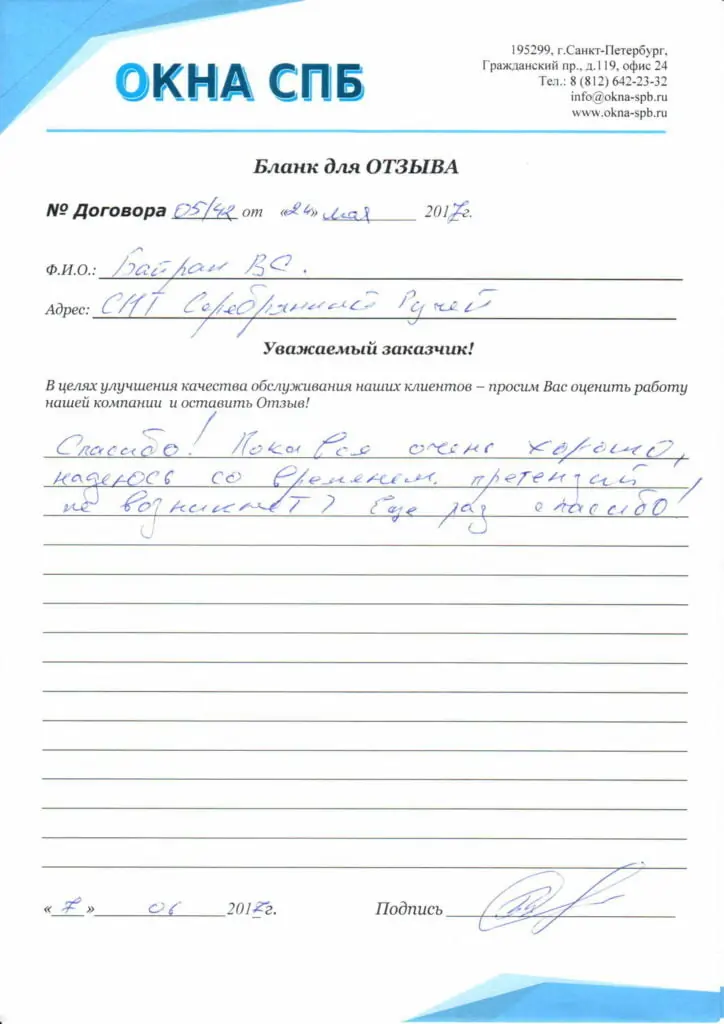 ОКНА СПБ
195299, г.Санкт-Петербург,
Гражданский пр., д.119, офис 24
Тел.: 8 (812) 642-23-32
info@okna-spb.ru
www.okna-spb.ru
Бланк для ОТЗЫВА
№ Договора 05/42 от «24» мая 2017г.
Ф.И.О.: Байран В С.
Адрес: СНТ Серебрянный Ручей
Уважаемый заказчик!
В целях улучшения качества обслуживания наших клиентов – просим Вас оценить работу
нашей компании и оставить Отзыв!
Спасибо! Пока всё очень хорошо,
надеюсь со времянем претензий
не возникнет? Еще раз спасибо!
«7» 06 2017г. Подпись